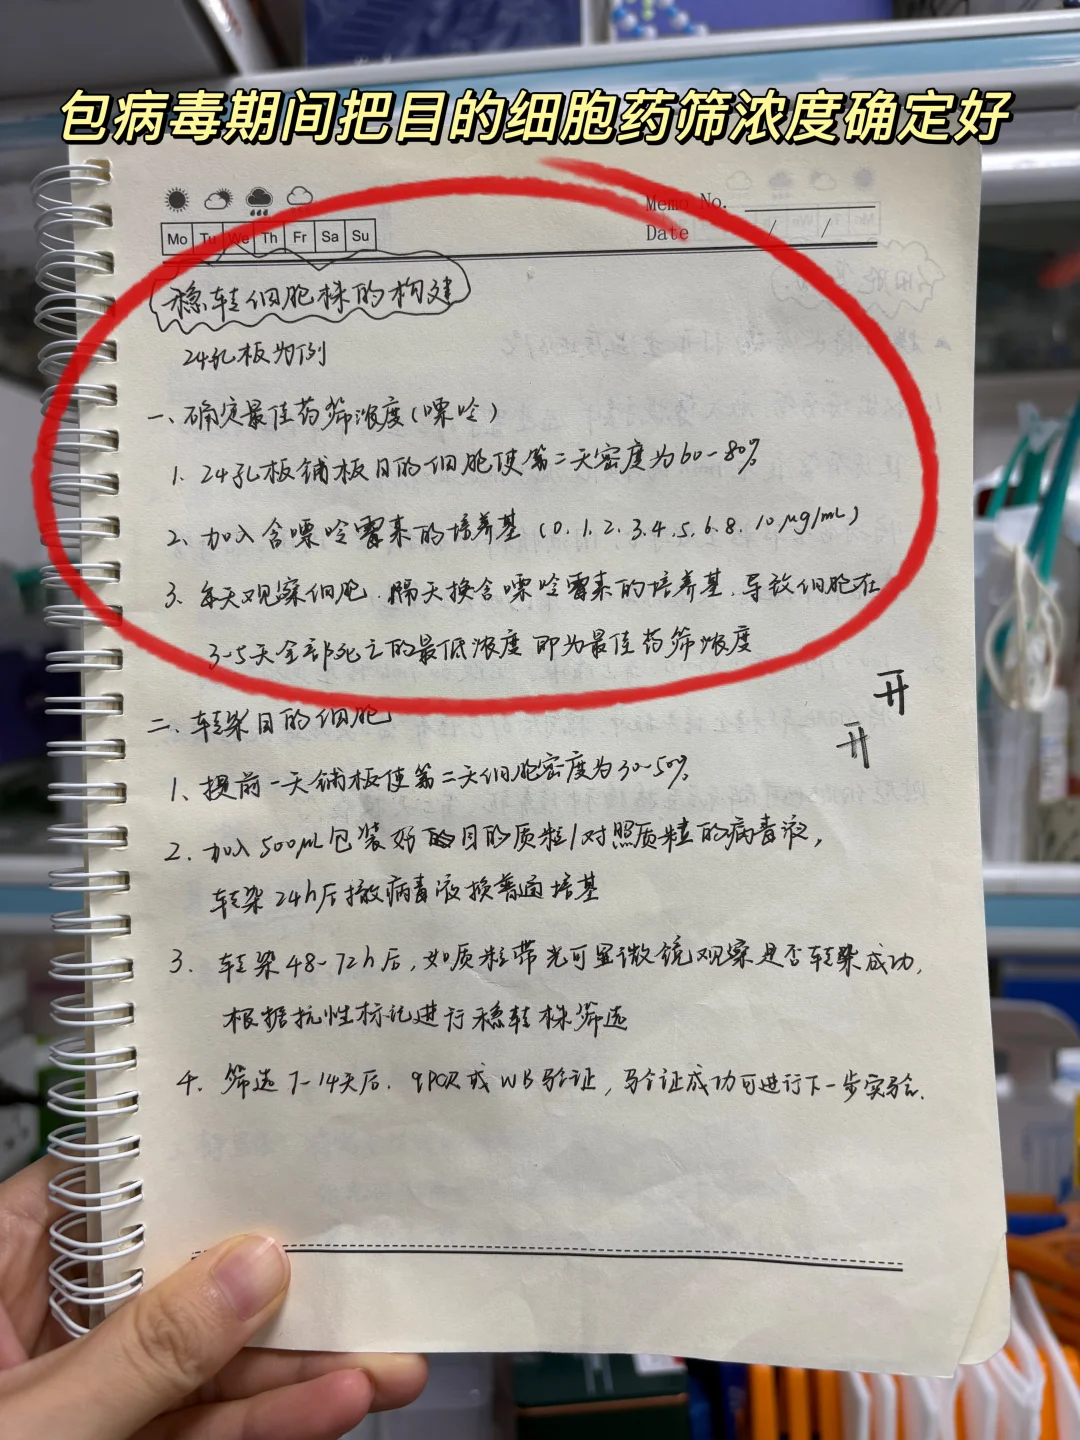 包病毒期间把目的细胞药筛浓度确定好
Memo No.
Mo Tu We Th Fr Sa Su
Date / /
稳转细胞株的构建
24孔板为例
一、确定最佳药筛浓度(嘌呤)
1. 24孔板铺板目的细胞使第二天密度为60-80%
2. 加入含嘌呤霉素的培养基(0.1.2.3.4.5.6.8.10μg/mL)
3. 每天观察细胞.隔天换含嘌呤霉素的培养基.导致细胞在
3-5天全部死亡的最低浓度即为最佳药筛浓度
二、转染目的细胞
1、提前一天铺板使第二天细胞密度为30-50%
2. 加入500μL包装好的目的质粒/对照质粒的病毒液,
转染24h后撤病毒液换普通培基
3. 转染48-72h后,如质粒带光可显微镜观察是否转染成功,
根据抗性标记进行稳转株筛选
4. 筛选7-14天后.qPCR或WB验证,验证成功可进行下一步实验.